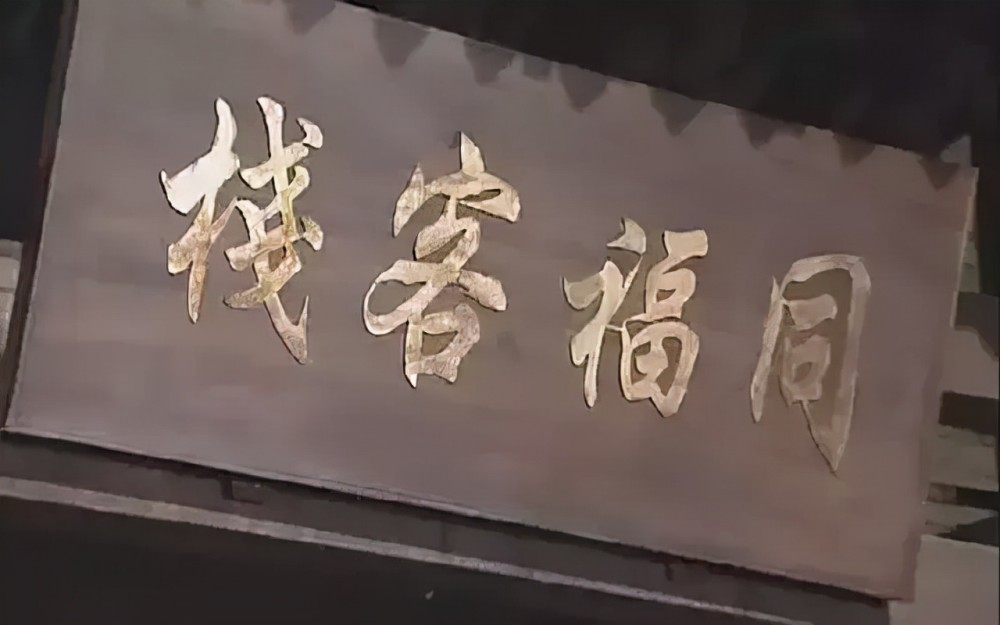 同福客栈